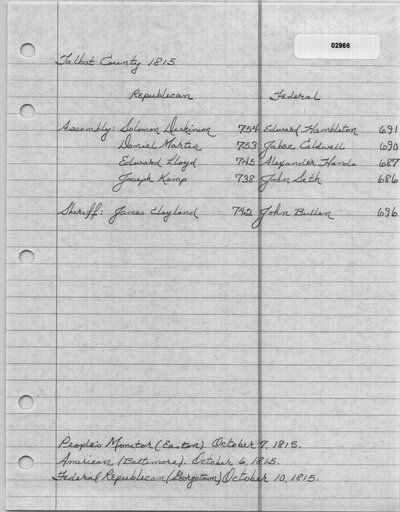 02966
Talbot County 1815
Republican Federal
Assembly: Solomon Dickinson 754 Edward Hambleton 691
Daniel Martin 753 Jabez Caldwell 690
Edward Lloyd 745 Alexander Hands 687
Joseph Kemp 738 John Seth 686
Sheriff: James Clayland 742 John Bullen 696
People's Monitor (Easton). October 7, 1815.
American (Baltimore). October 6, 1815.
Federal Republican (Georgetown) October 10, 1815.